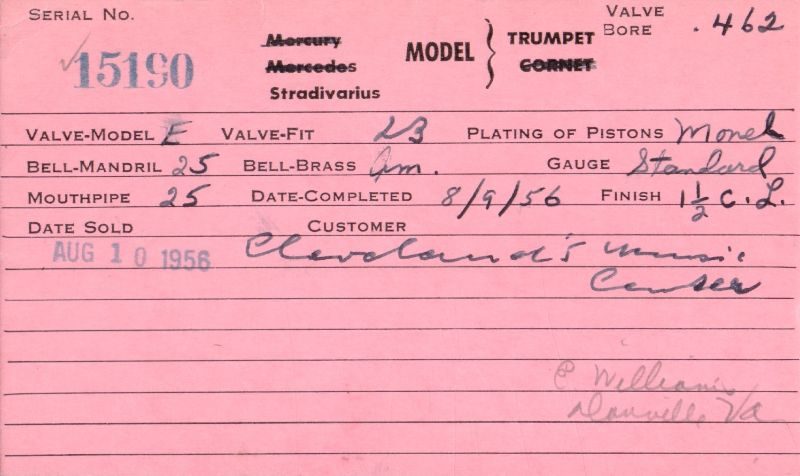 SERIAL NO. Mercury MODEL TRUMPET VALVE BORE .462
15190 Mercedes CORNET
Stradivarius
VALVE-MODEL E VALVE-FIT 23 PLATING OF PISTONS Monel
BELL-MANDRIL 25 BELL-BRASS Am. GAUGE Standard
MOUTHPIPE 25 DATE-COMPLETED 8/9/56 FINISH 1 1/2 C. L.
DATE SOLD CUSTOMER
AUG 10 1956 Cleveland's Music
Center
E Williams
Danville Va